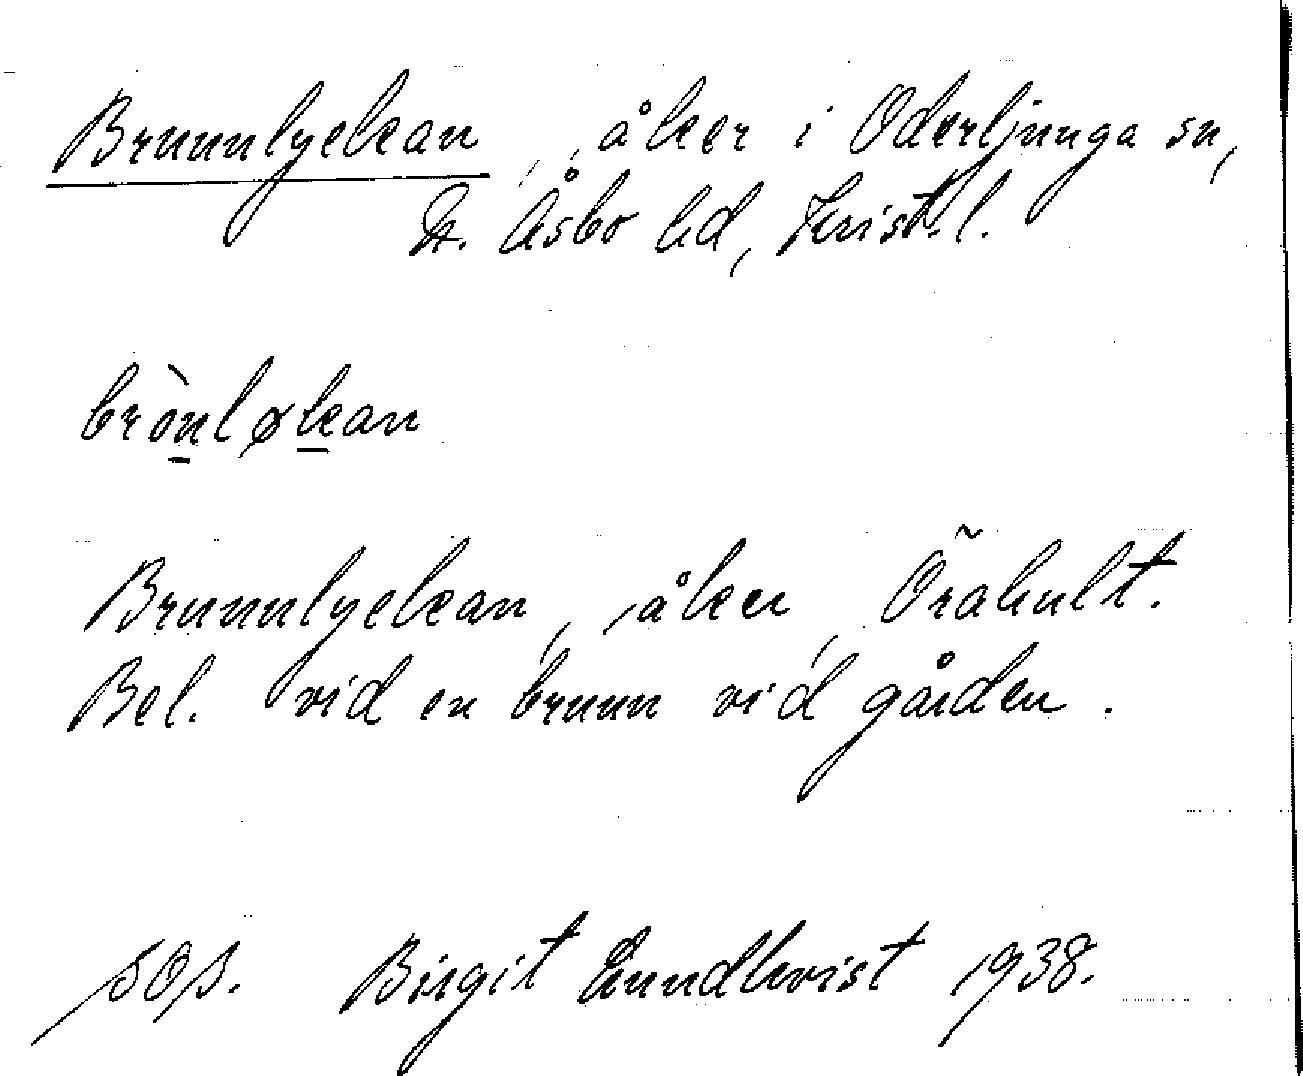 Brunnlyckan, åker i Oderljunga sn,
N. Åsbo hd, Krist. l.
brònløkan
Brunnlyckan, åker, Örahult.
Bel. vid en brunn vid gården.
Birgit Lundkvist 1938.